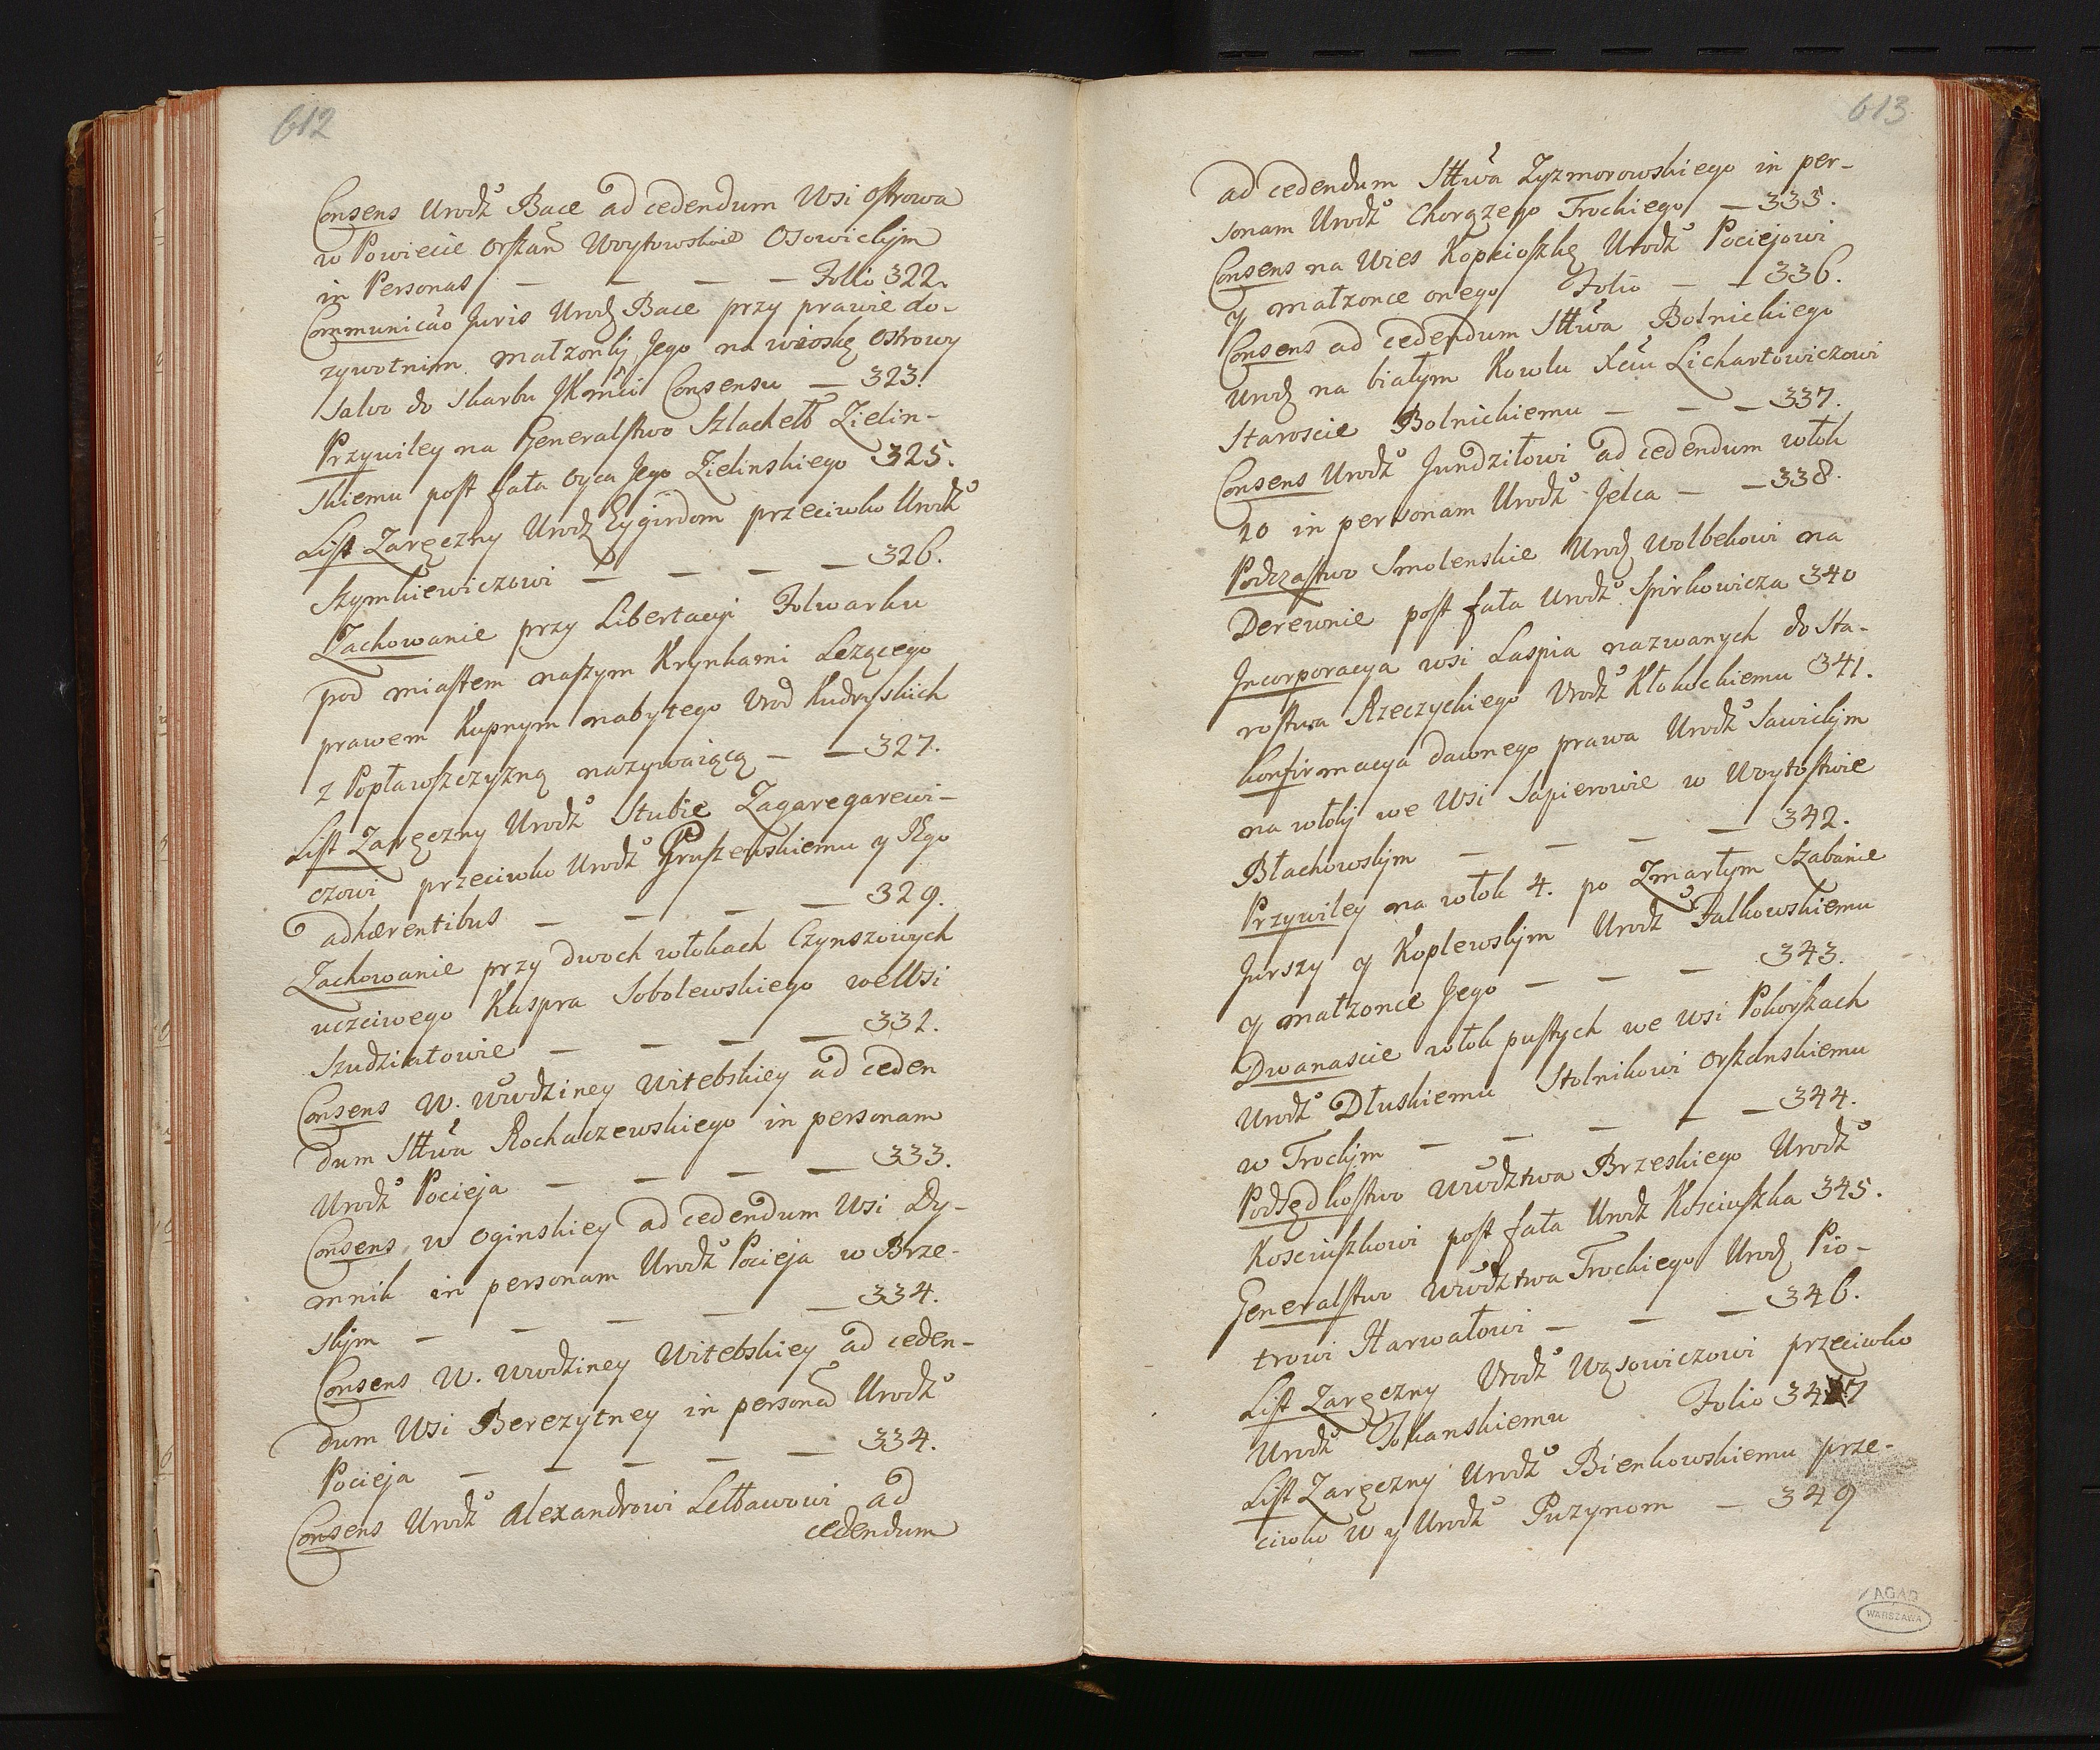 612
Consens Urodz Bace ad cedendum Wsi Ostrowa
w Powiecie Orszan Woytowskie Osowickim
in Personas — — — — Folio 322.
Communicao Juris Urodz Bace przy prawie do-
zywotnim małzonki Jego na wioskę Ostrowy
salvo do skarbu JKmci Consensu — 323.
Przywiley na Generalstwo Szlachett Zielin-
skiemu post fata oyca Jego Zielinskiego 325.
List Zaręczny Urodz Eygirdom przeciwko Urodz
Szymkiewiczowi — — — — 326.
Zachowanie przy Libertacyi Folwarku
pod miastem naszym Krynkami Lezącego
prawem Kupnym nabytego Urod Kudryskich
z Popławszczyzną nazywaiącą — — 327.
List Zaręczny Urodz Stubie Zagaregarewi-
czowi przeciwko Urodz Gruszewskiemu y JEgo
adhærentibus — — — — 329.
Zachowanie przy dwoch włokach Czynszowych
uczciwego Kaspra Sobolewskiego we Wsi
Szudziałowie — — — — 332.
Consens W. Wwdziney Witebskiey ad ceden
dum Sttwa Rochaczewskiego in personam
Urodz Pocieja — — — — 333.
Consens W Oginskiey ad cedendum Wsi Dy-
mnik in personam Urodz Pocieja w Brze-
skim — — — — — 334.
Consens W. Wwodziney Witebskiey ad ceden-
dum Wsi Berezytney in personã Urodz
Pocieja — — — — — 334.
Consens Urodz Alexandrowi Lettawowi ad
cedendum
613
ad cedendum Sttwa Zyzmorowskiego in per-
sonam Urodz Chorązego Trockiego — 335.
Consens na Wies Kopkioszkę Urodz Pociejowi
y małzonce onego Folio — — 336.
Consens ad cedendum Sttwa Bolnickiego
Urodz na białym Kowlu Xciu Lichartowiczowi
Staroscie Bolnickiemu — — — 337.
Consens Urodz Jundziłowi ad cedendum włok
20 in personam Urodz Jelca — — 338.
Podczastwo Smolenskie Urodz Wolbekowi na
Derewnie post fata Urodz Spirkowicza 340
Incorporacya wsi Laspia nazwanych do Sta-
rostwa Rzeczyckiego Urodz Kłokockiemu 341.
Konfirmacya dawnego prawa Urodz Sawickim
na włoki we Wsi Sapierowie w Woytostwie
Błachowskim — — — — 342.
Przywiley na włok 4. po Zmarłym Szabanie
Jurszy y Koplewskim Urodz Falkowskiemu
y małzonce Jego — — — 343.
Dwanascie włok pustych we Wsi Pokorszach
Urodz Dłuskiemu Stolnikowi Orszanskiemu
w Trockim — — — — — 344.
Podsędkostwo Wwdztwa Brzeskiego Urodz
Kosciuszkowi post fata Urodz Kosciuszka 345.
Generalstwo Wwodztwa Trockiego Urodz Pio-
trowi Harwatowi — — — 346.
List Zaręczny Urodz Wąsowiczowi przeciwko
Urodz Tokanskiemu Folio 347
List Zaręczny Urodz Bienkowskiemu prze-
ciwko W y Urodz Puzynom — 349
AGAD
WARSZAWA